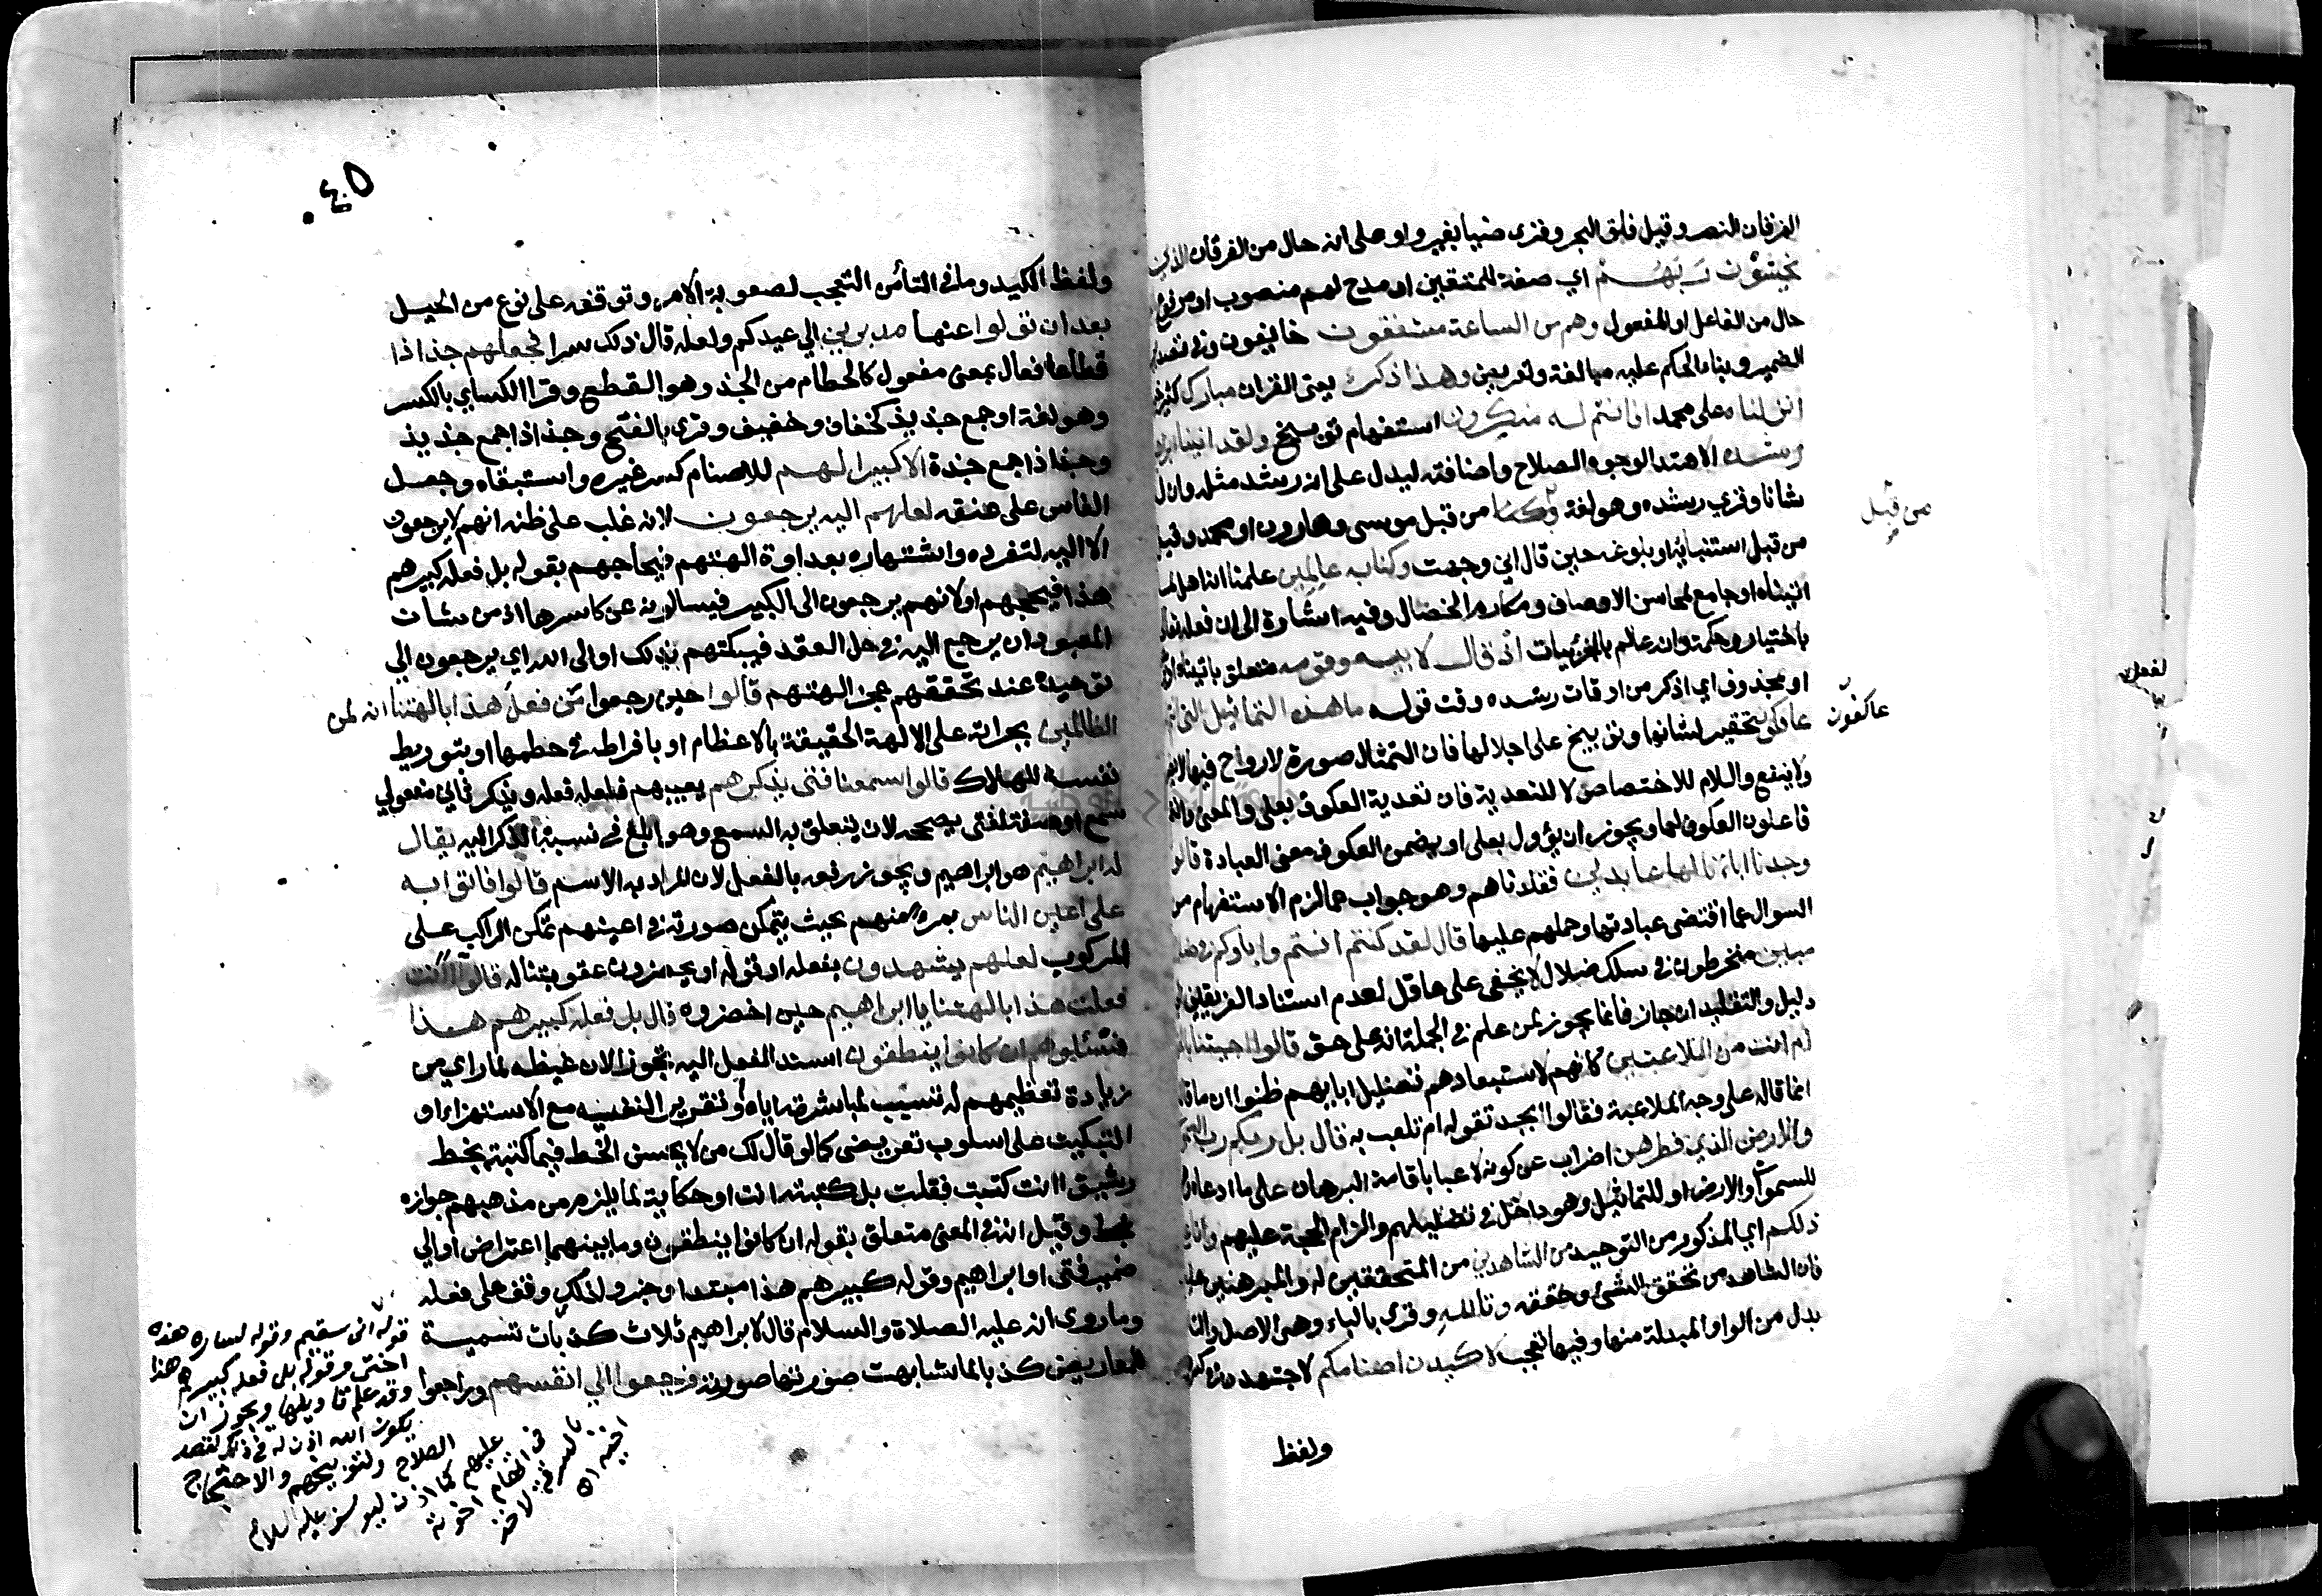 الفرقان النصر وقيل فلق البحر وقرئ ضيا بغير واو على انه حال من الفرقان الذين
يخشون ربهم اي صفة للمتقين او مدح لهم منصوب او مرفوع
حال من الفاعل او المفعول وهم من الساعة مشفقون خايفون وفي تصدير
الضمير وبناء الحكم عليه مبالغة وتعريض وهذا ذكر يعني القران مبارك كثير خيره
انزلناه على محمد افانتم له منكرون استفهام توبيخ ولقد اتينا ابرهيم
رشده الاهتدا لوجوه الصلاح واضافته ليدل على انه رشد مثله وان له
شانا وقري رشده وهو لغة وكنا من قبل موسى وهارون او محمد وقيل
من قبل
من قبل استنبائه او بلوغه حين قال اني وجهت وكنا به عالمين علمنا انه اهل لما
اتيناه او جامع لمحاسن الاوصاف ومكارم الخصال وفيه اشارة الى ان فعله تعالى
باختيار وحكمة وانه عالم بالجزئيات اذ قال لابيه وقومه متعلق باتينا او
او محذوف اي اذكر من اوقات رشده وقت قوله ما هذه التماثيل التي انتم
عاكفون تحقير لشانها وتوبيخ على اجلالها فان التمثال صورة لا روح فيها لا يضر
عاكفون
ولا ينفع واللام للاختصاص لا للتعدية فان تعدية العكوف بعلى والمعنى
فاعلون العكوف لها ويجوز ان يؤول بعلى او يضمن العكوف معنى العبادة قالوا
وجدنا اباءنا لها عابدين فقلدناهم وهو جواب عما لزم الاستفهام من
السوال عما اقتضى عبادتها وحملهم عليها قال لقد كنتم انتم واباوكم في ضلال
مبين منخرطون في سلك ضلال لا يخفى على عاقل لعدم استناد الفريقين الى
دليل والتقليد ان جاز فانما يجوز لمن علم في الجملة انه على حق قالوا اجئتنا بالحق
ام انت من اللاعبين كانهم لاستبعادهم تضليل ابايهم ظنوا ان ما قاله
انما قاله على وجه الملاعبة فقالوا ابجد تقوله ام تلعب به قال بل ربكم رب السموات
والارض الذي فطرهن اضراب عن كونه لاعبا باقامة البرهان على ما ادعاه
للسموات والارض او للتماثيل وهو داخل في تضليلهم والزام الحجة عليهم وانا على
ذلكم اي المذكور من التوحيد من الشاهدين من المتحققين له والمبرهنين عليه
فان الشاهد من تحقق الشئ وحققه وتالله وقرئ بالباء وهي الاصل والتاء
بدل من الواو المبدلة منها وفيها تعجب لاكيدن اصنامكم لاجتهدن في كسرها
ولفظ
٤٠٥
ولفظ الكيد وما في التا من التعجب لصعوبة الامر وتوقفه على نوع من الحيل
بعد ان تولوا عنها مدبرين الي عيدكم ولعله قال ذلك سرا فجعلهم جذاذا
قطاعا فعال بمعنى مفعول كالحطام من الجذ وهو القطع وقرا الكساي بالكسر
وهو لغة او جمع جذيذ كخفاف وخفيف وقرئ بالفتح وجذذا جمع جذيذ
وجذذا جمع جذة الا كبيرا لهم للاصنام كسر غيره واستبقاه وجعل
الفاس على عنقه لعلهم اليه يرجعون لانه غلب على ظنه انهم لا يرجعون
الا اليه لتفرده واشتهاره بعداوة الهتهم فيحاجهم بقوله بل فعله كبيرهم
هذا فيحجهم او لانهم يرجعون الى الكبير فيسالونه عن كاسرها اذ من شان
المعبود ان يرجع اليه في حل العقد فيبكتهم بذلك او الى الله اي يرجعون الي
توحيده عند تحققهم عجز الهتهم قالوا حين رجعوا من فعل هذا بالهتنا انه لمن
الظالمين بجراته على الالهة الحقيقة بالاعظام او بافراطه في حطمها او بتوريط
نفسه للهلاك قالوا سمعنا فتى يذكرهم يعيبهم فلعله فعله ويذكر ثاني مفعولي
سمع او صفة لفتى يصححه لان يتعلق به السمع وهو ابلغ في نسبة الذكر اليه يقال
له ابراهيم هو ابراهيم ويجوز رفعه بالفعل لان المراد به الاسم قالوا فاتوا به
على اعين الناس بمرءى منهم بحيث يتمكن صورته في اعينهم تمكن الراكب على
المركوب لعلهم يشهدون بفعله او قوله او يحضرون عقوبتنا له قالوا اانت
فعلت هذا بالهتنا يا ابراهيم حين احضروه قال بل فعله كبيرهم هذا
فسئلوهم ان كانوا ينطقون اسند الفعل اليه تجوزا لان غيظه لما راي من
زيادة تعظيمهم له تسبب لمباشرته اياه او تقرير النفيه مع الاستهزاء او
التبكيت على اسلوب تعريضي كما لو قال لك من لا يحسن الخط فيما كتبته بخط
رشيق اانت كتبت فقلت بل كتبته انت او حكاية لما يلزم من مذهبهم جوازه
وقيل انه في المعنى متعلق بقوله ان كانوا ينطقون وما بينهما اعتراض او الي
ضمير فتى او ابراهيم وقوله كبيرهم هذا مبتدا وخبر ولذلك وقف على فعله
وما روي انه عليه الصلاة والسلام قال لابراهيم ثلاث كذبات تسمية
للمعاريض كذبا لما شابهت صورتها صورته فرجعوا الي انفسهم وراجعوا
قوله اني سقيم وقوله لسارة هذه
اختي وقوله بل فعله كبيرهم هذا
وقد علم تاويلها ويجوز ان
يكون الله اذن له في ذلك لقصد
الصلاح ولتوبيخهم والاحتجاج
عليهم كما اذن ليوسف عليه السلام